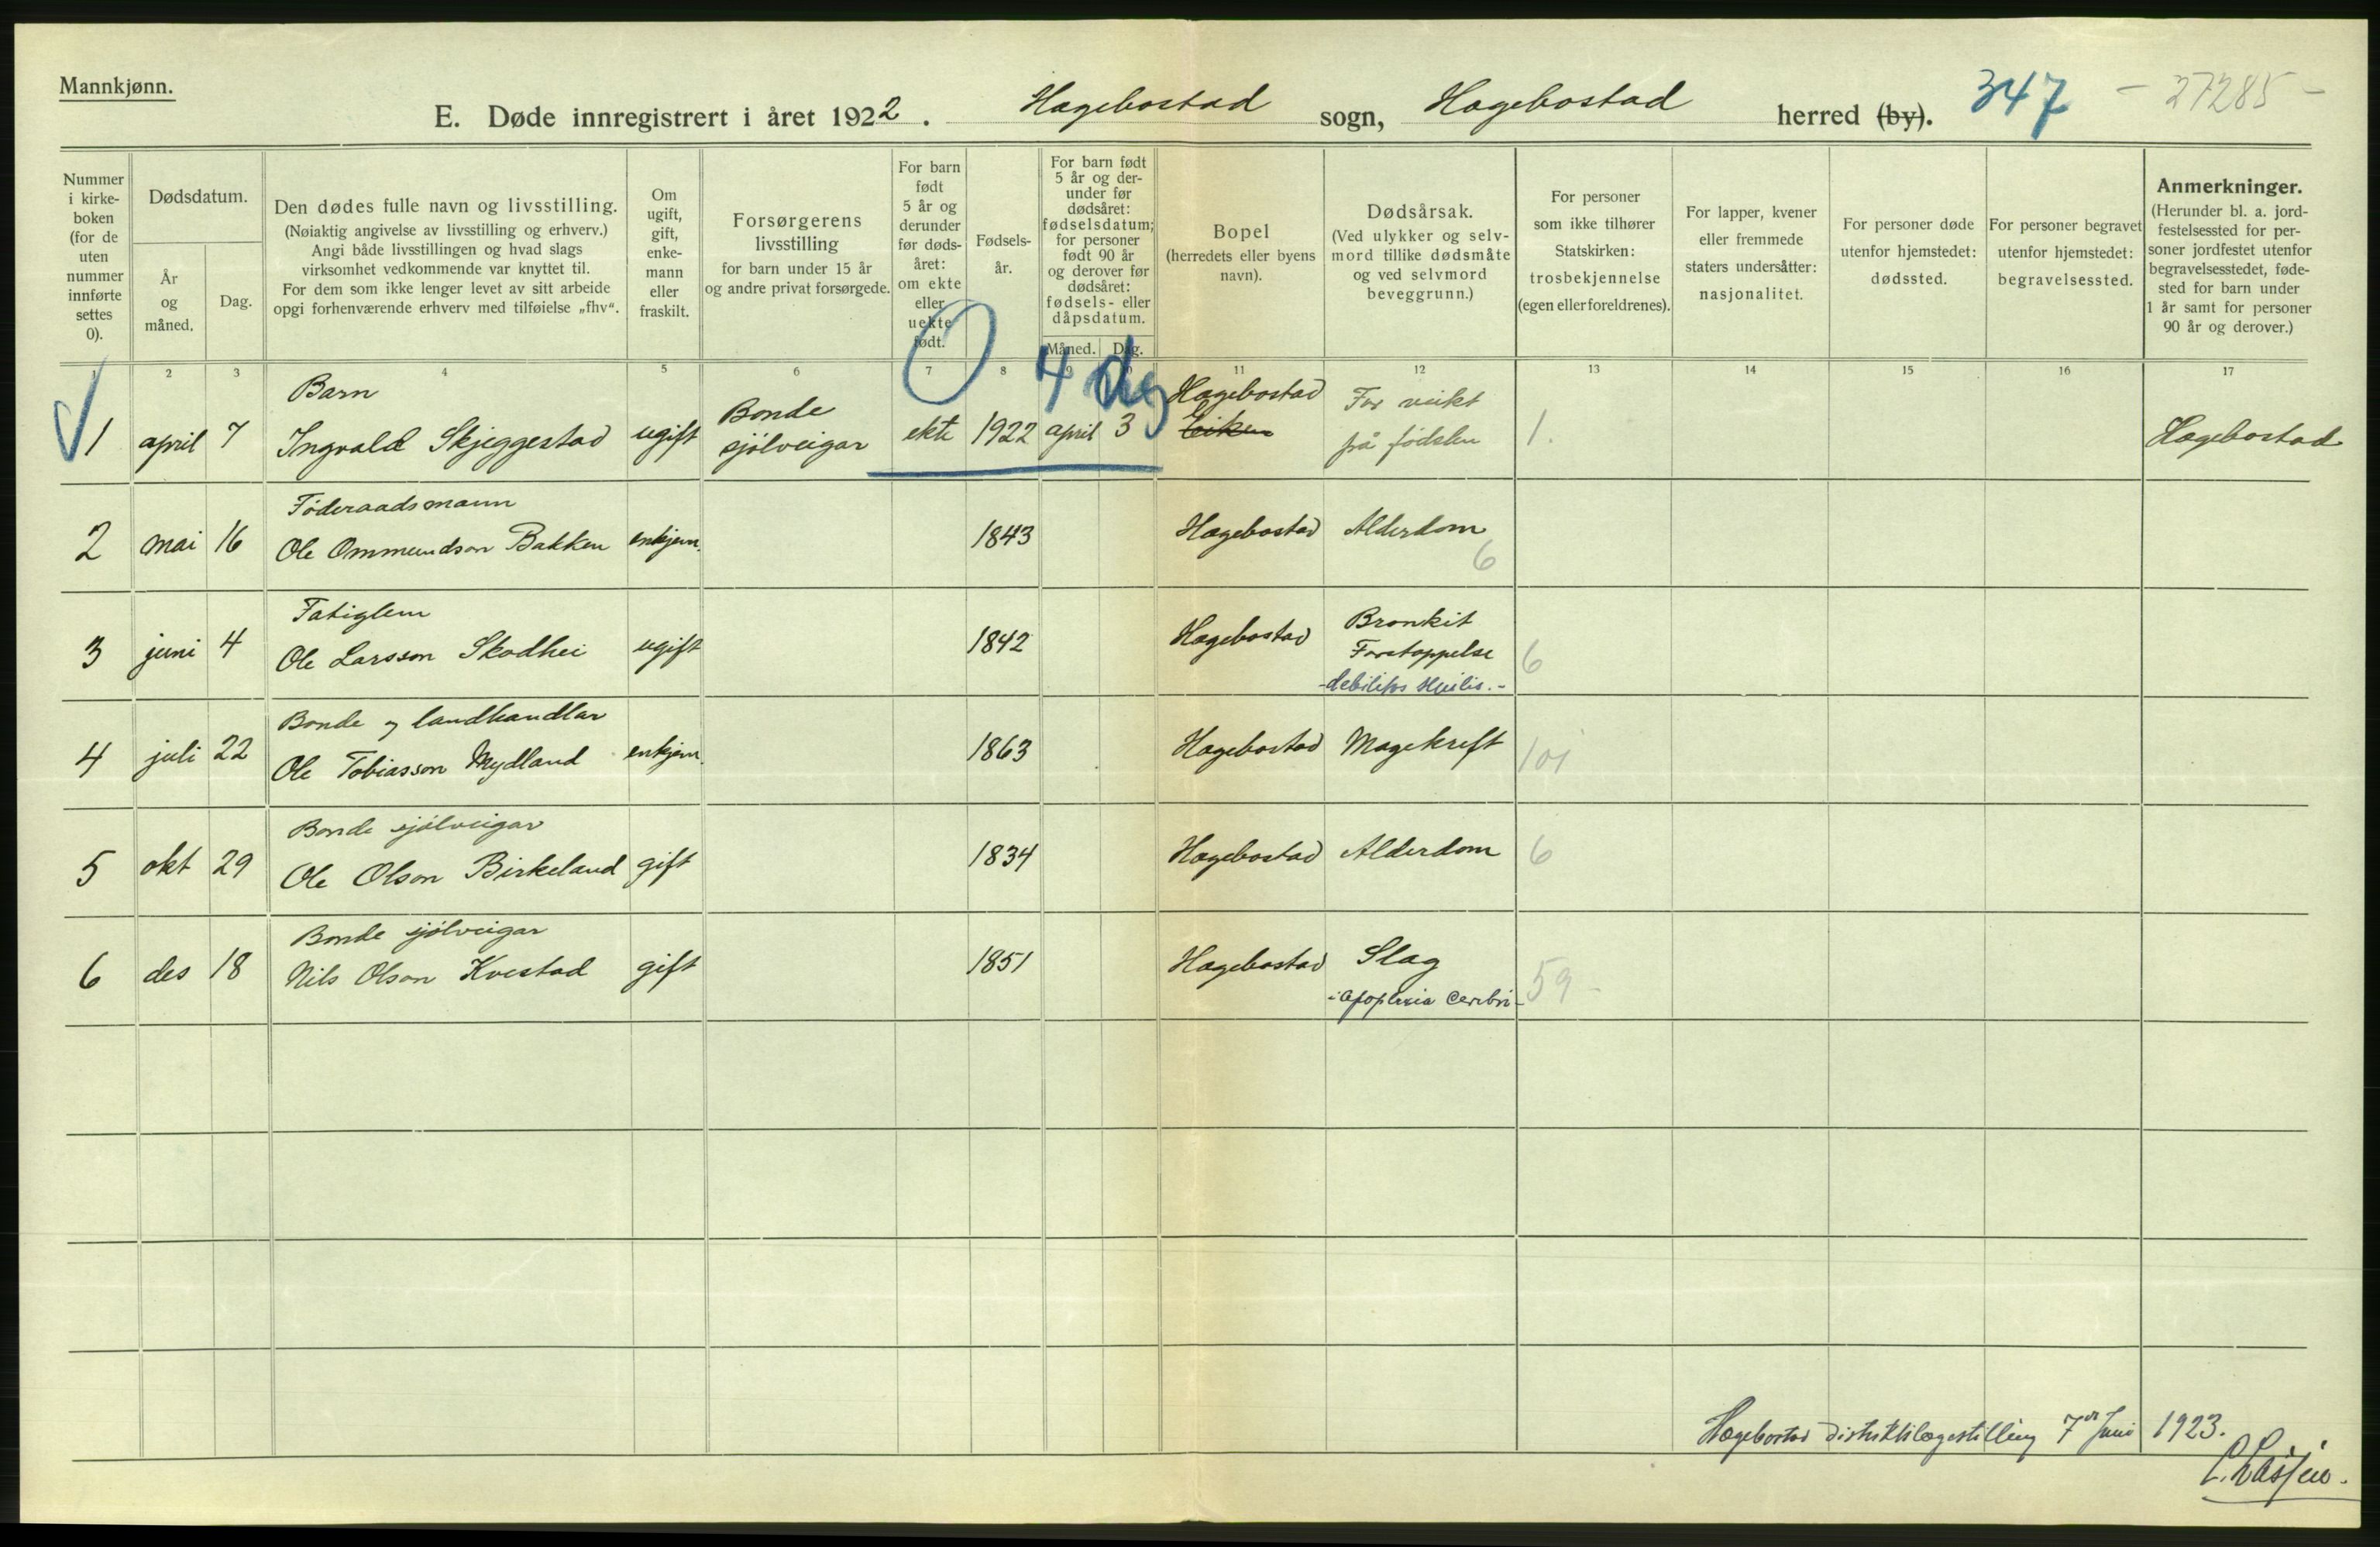 Mannkjønn.
E. Døde innregistrert i året 1922. Hægebostad sogn, Hægebostad herred (by). 347 - 27285 -
Nummer i kirke- boken (for de uten nummer innførte settes 0).
Dødsdatum.
År og måned.
Dag.
Den dødes fulle navn og livsstilling.
(Nøiaktig angivelse av livsstilling og erhverv.)
Angi både livsstillingen og hvad slags
virksomhet vedkommende var knyttet til.
For dem som ikke lenger levet av sitt arbeide
opgi forhenværende erhverv med tilføielse „fhv“.
Om ugift, gift, enke- mann eller fraskilt.
Forsørgerens
livsstilling
for barn under 15 år
og andre privat forsørgede.
For barn født 5 år og derunder før døds- året: om ekte eller uekte født.
Fødsels- år.
For barn født 5 år og der- under før dødsåret: fødselsdatum; for personer født 90 år og derover før dødsåret: fødsels- eller dåpsdatum.
Måned. Dag.
Bopel
(herredets eller byens
navn).
Dødsårsak.
(Ved ulykker og selv-
mord tillike dødsmåte
og ved selvmord
beveggrunn.)
For personer
som ikke tilhører
Statskirken:
trosbekjennelse
(egen eller foreldrenes).
For lapper, kvener
eller fremmede
staters undersåtter:
nasjonalitet.
For personer døde
utenfor hjemstedet:
dødssted.
For personer begravet
utenfor hjemstedet:
begravelsessted.
Anmerkninger.
(Herunder bl. a. jord-
festelsessted for per-
soner jordfestet utenfor
begravelsesstedet, føde-
sted for barn under
1 år samt for personer
90 år og derover.)
1 2 3 4 5 6 7 8 9 10 11 12 13 14 15 16 17
4 dg
Barn
Bonde
Hægebostad
For veikt
1 april 7 Ingvald Skjeggestad ugift sjölveigar ekte 1922 april 3 Eiken på födslen 1. Hægebostad
Föderaadsmann
2 mai 16 Ole Ommundson Bakken enkjem. 1843 Hægebostad Alderdom
6
Fatiglem
Bronkit
3 juni 4 Ole Larsson Skodhei ugift 1842 Hægebostad Forstoppelse 6
-debilitas senilis.-
Bonde og landhandlar
4 juli 22 Ole Tobiasson Mydland enkjem. 1863 Hægebostad Magekreft 101
Bonde sjölveigar
5 okt 29 Ole Olson Birkeland gift 1834 Hægebostad Alderdom 6
Bonde sjölveigar
6 des 18 Nils Olson Kvestad gift 1851 Hægebostad Slag
-apoplexia cerebri- 59 -
Hægebostad distriktslægestilling 7de Juni 1923.